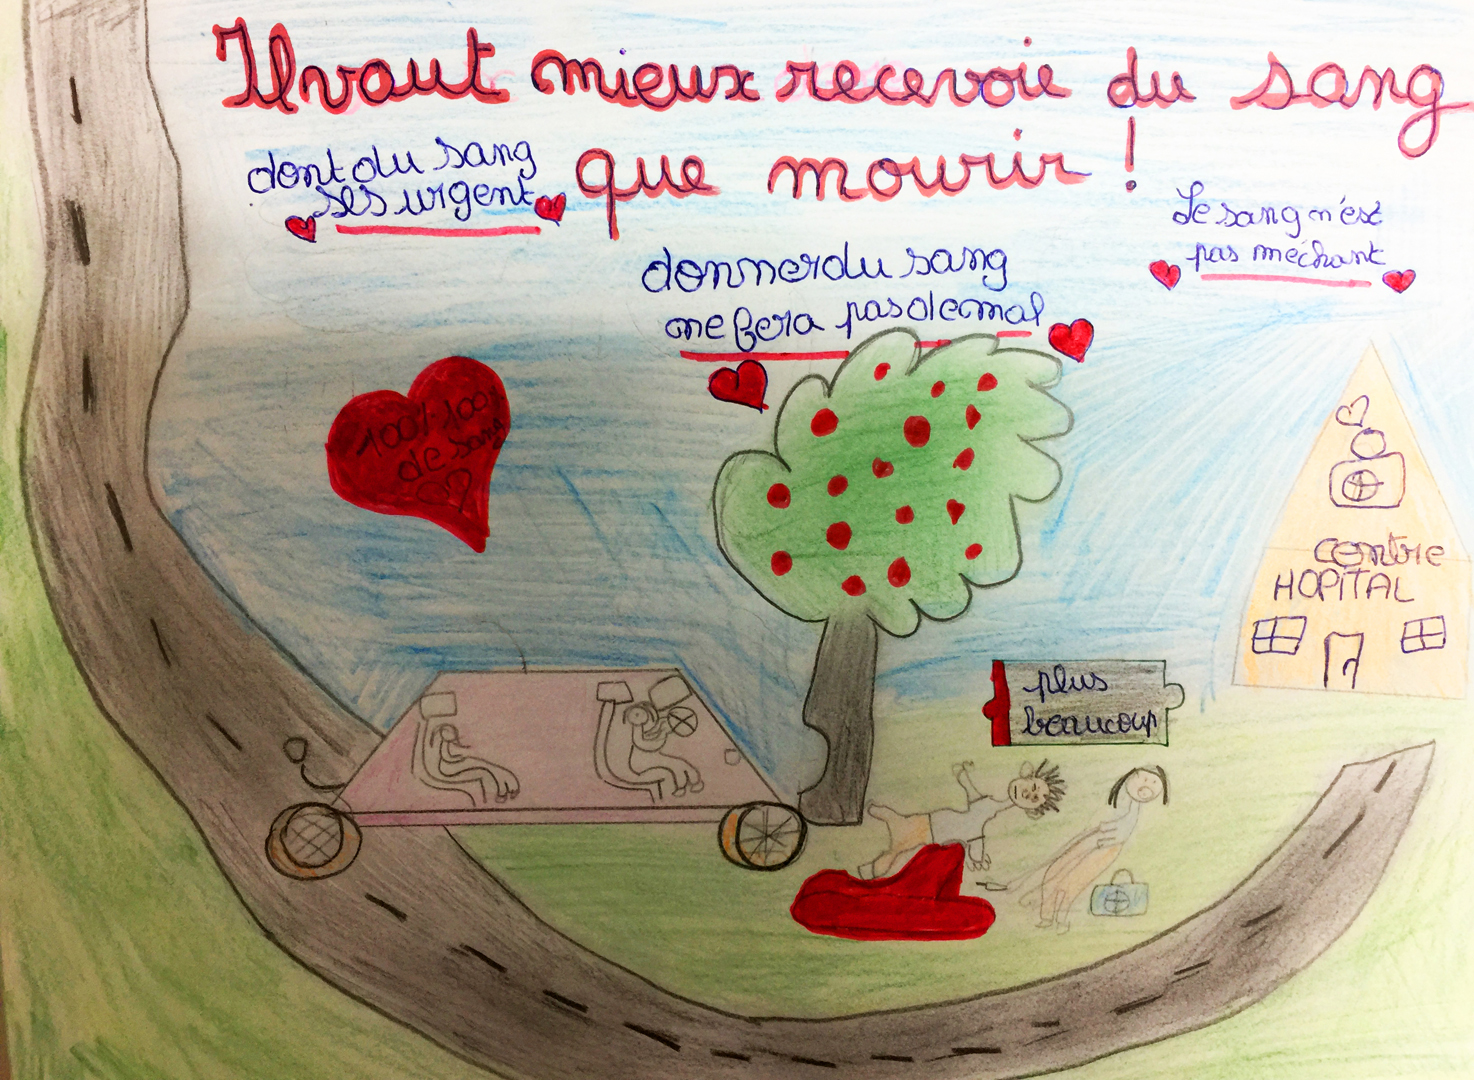 Il vaut mieux recevoie du sang
que mourir !
dont du sang
ses urgent
donner du sang
ne fera pas de mal
Le sang n'est
pas méchant
100% 100
de sang
centre
HOPITAL
plus
beaucoup